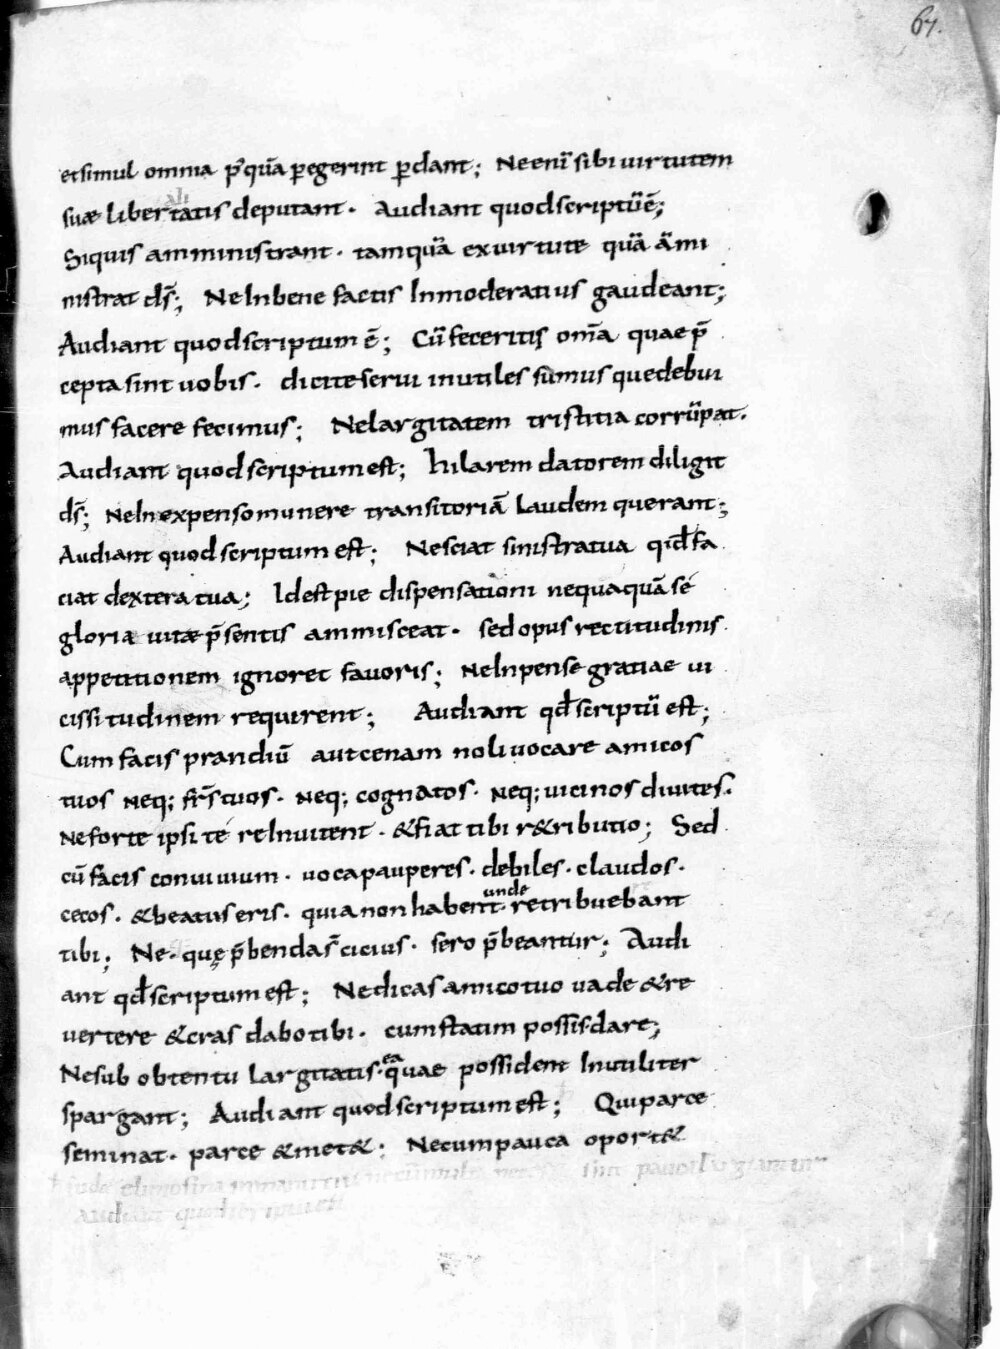 67.
etsimul omnia p̄ quā pegerint pdant; Ne enī sibi uirtutem
suæ libertatis deputant. Audiant quod scriptū ē;
ali
Siquis amministrant. tamquā ex uirtute quā āmi
nistrat ds̄; Ne In bene factis Inmoderatius gaudeant;
Audiant quod scriptum ē; Cū feceritis om̄a quae p̄
cepta sint uobis. dicite serui inutiles sumus que debui
mus facere fecimus; Ne largitatem tristitia corrūpat.
Audiant quod scriptum est; hilarem datorem diligit
ds̄; Ne In expenso munere transitoriā Laudem querant;
Audiant quod scriptum est; Nesciat sinistra tua qd̄ fa
ciat dextera tua; Id est pie dispensationi nequaquā se
gloria uitæ p̄sentis ammisceat. sed opus rectitudinis
appetitionem ignoret fauoris; Ne Inpense gratiae ui
cissitudinem requirent; Audiant qd̄ scriptū est;
Cum facis prandiū aut cenam noli uocare amicos
tuos neq; fr̄s tuos. neq; cognatos. neq; uicinos diuites.
Ne forte ipsi te reInuitent. & fiat tibi r&ributio; Sed
cū facis conuiuium. uoca pauperes. debiles. claudos.
cecos. & beatus eris. quia non habent unde retribuebant
tibi; Ne. quę p̄benda s̄ cicius. sero p̄beantur; Audi
ant qd̄ scriptum est; Ne dicas amico tuo uade & re
uertere & cras dabo tibi. cum statim possis dare;
Ne sub obtentu Largitatis. ea quae possident Inutiliter
spargant; Audiant quod scriptum est; Qui parce
seminat. parce & met&; Ne cum pauca oport&
sint
Audiant quod scriptum est